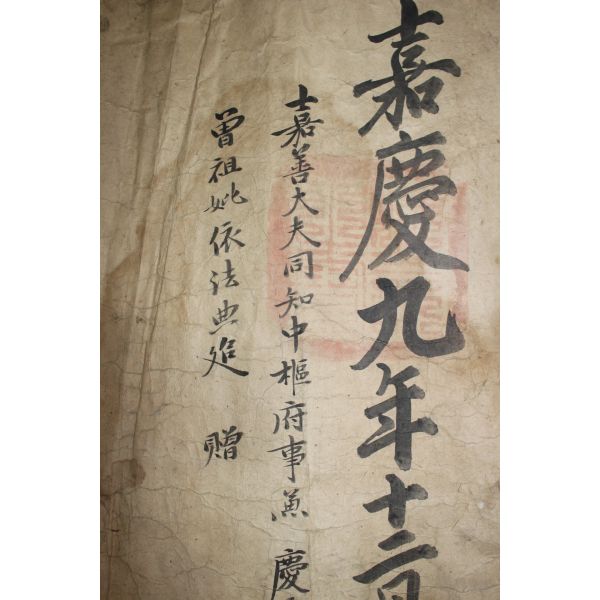 嘉慶九年十二月
嘉善大夫同知中樞府事兼 慶
曾祖妣依法典追 贈